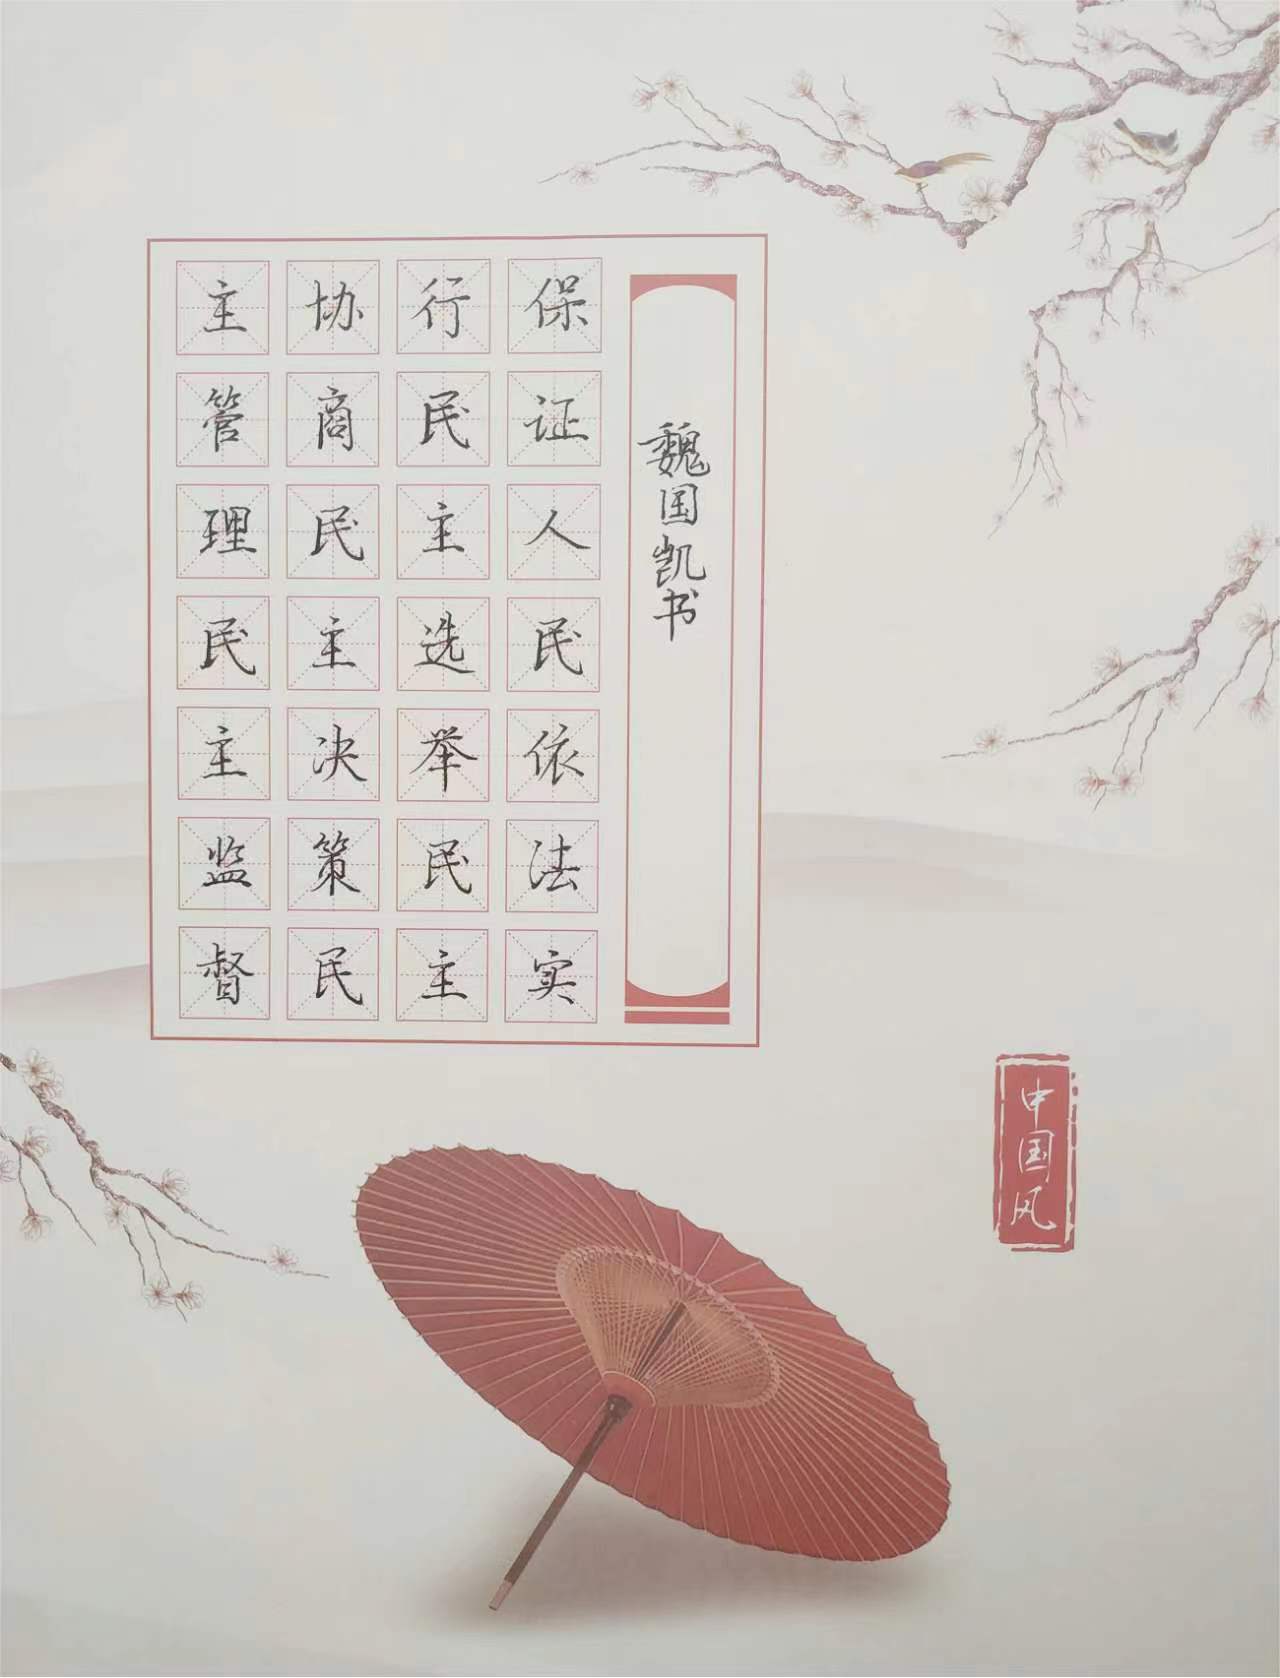 魏国凯书
保证人民依法实
行民主选举民主
协商民主决策民
主管理民主监督
中国风